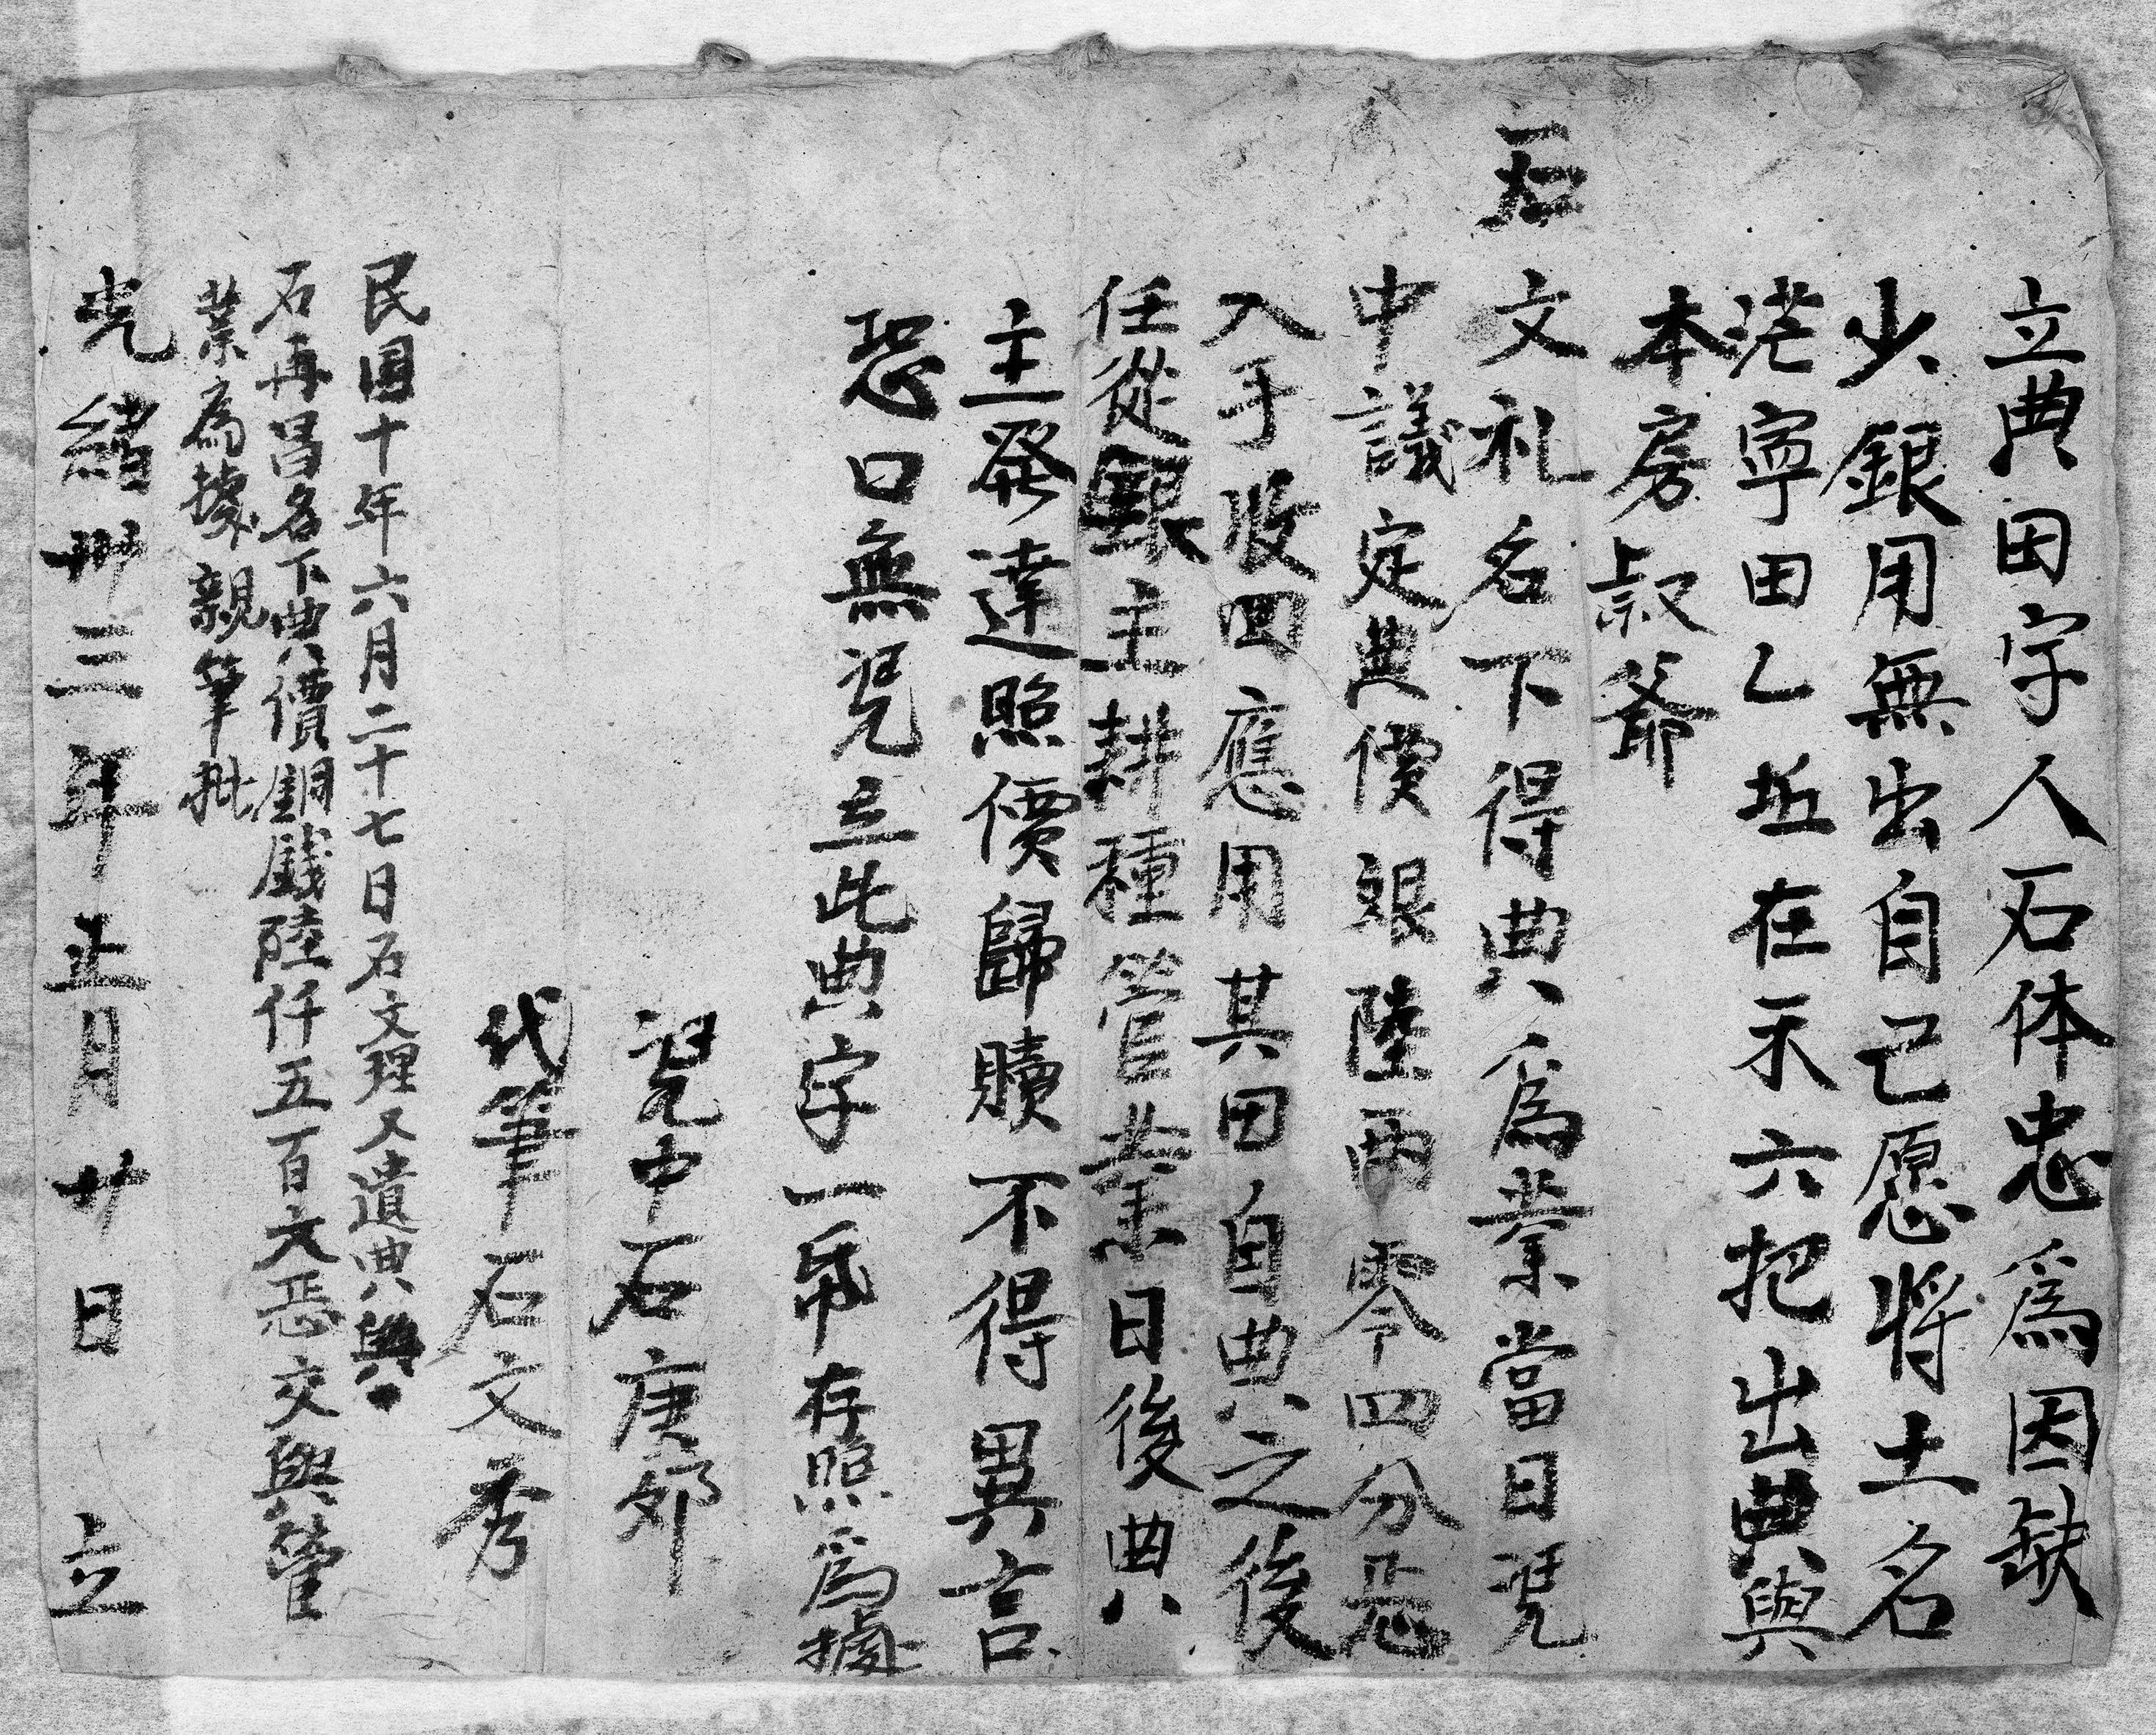 立典田字人石体忠為因缺
少銀用無出自己愿將土名
茫寧田乙坵在禾六把出典與
本房叔爺
石文礼名下得典為業當日凴
中議定典價艮陸兩零四分恁
入手收回應用其田自典之後
任從銀主耕種管業日後典
主發達照價歸贖不得異言
恐口無凴立此典字一帋存照為據
凴中石庚郊
代筆石文秀
民国十年六月二十七日石文理又遺典與
石再昌名下典價銅錢陸仟五百文恁交與管
業為據親筆批
光緒卅三年正月廿日 立